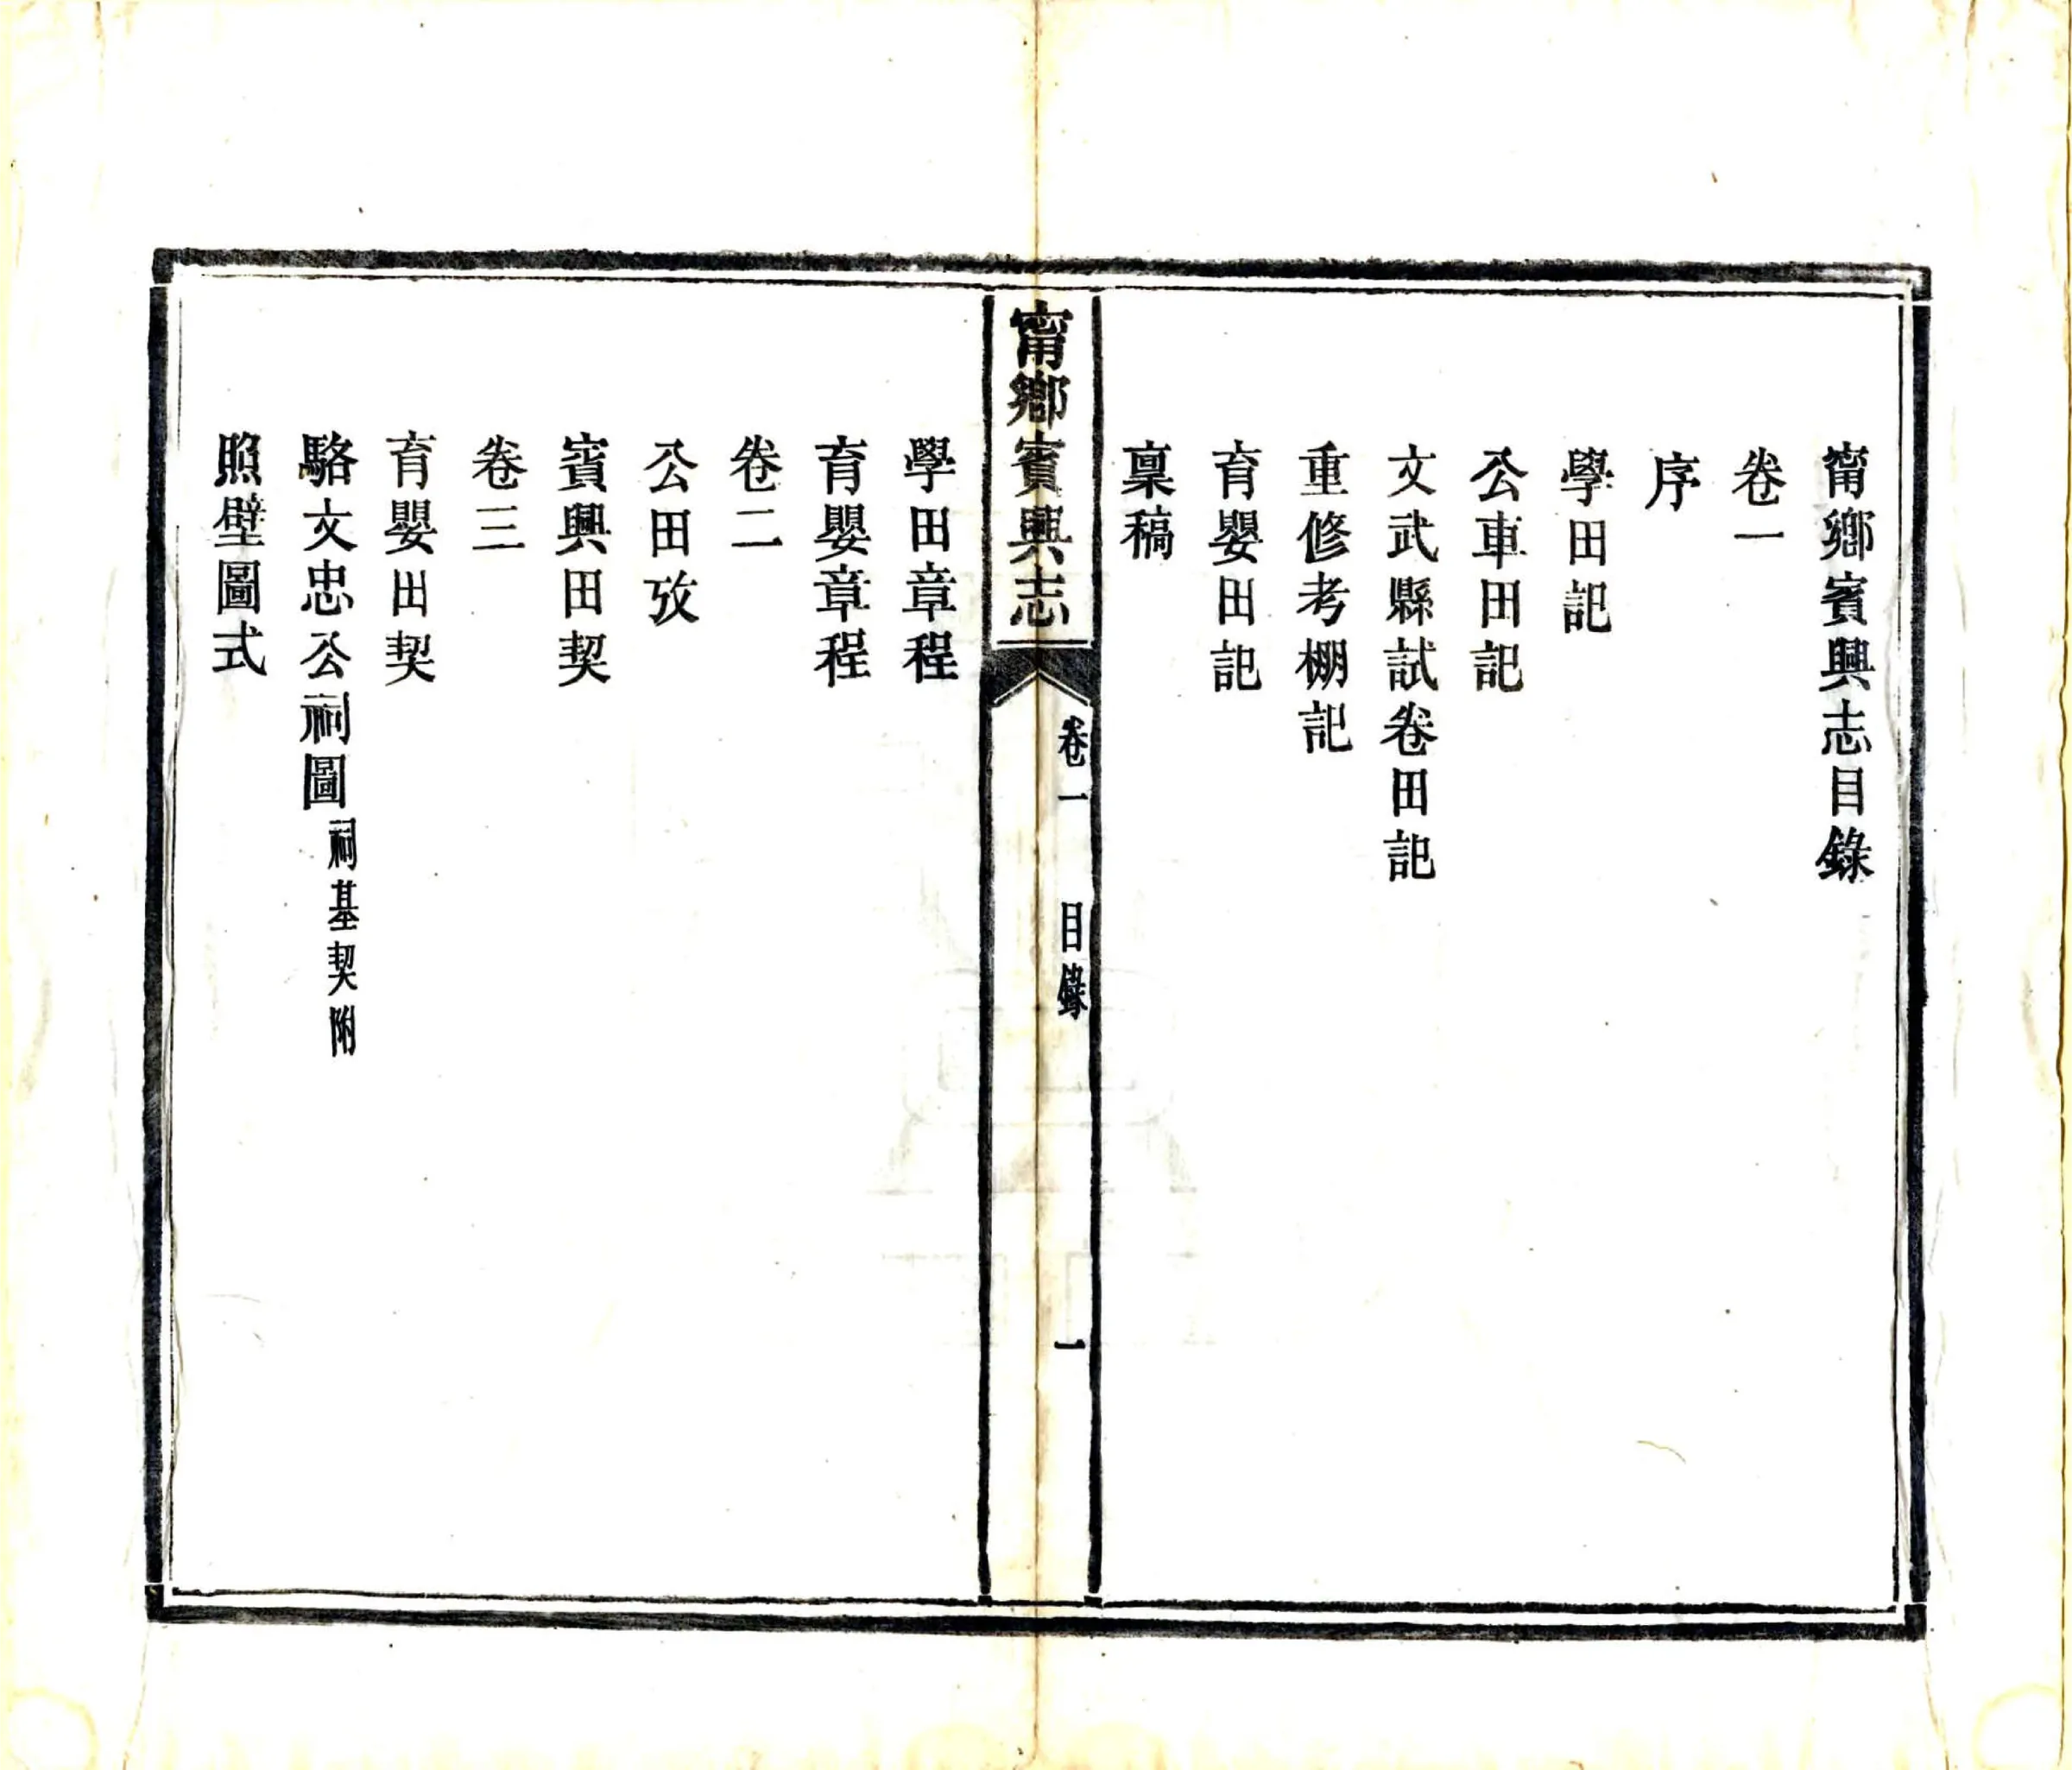 甯鄉賓興志目錄
卷一
序
學田記
公車田記
文武縣試卷田記
重修考棚記
育嬰田記
稟稿
甯鄉賓興志
卷一 目錄 一
學田章程
育嬰章程
卷二
公田攷
賓興田契
卷三
育嬰田契
駱文忠公祠圖祠基契附
照壁圖式